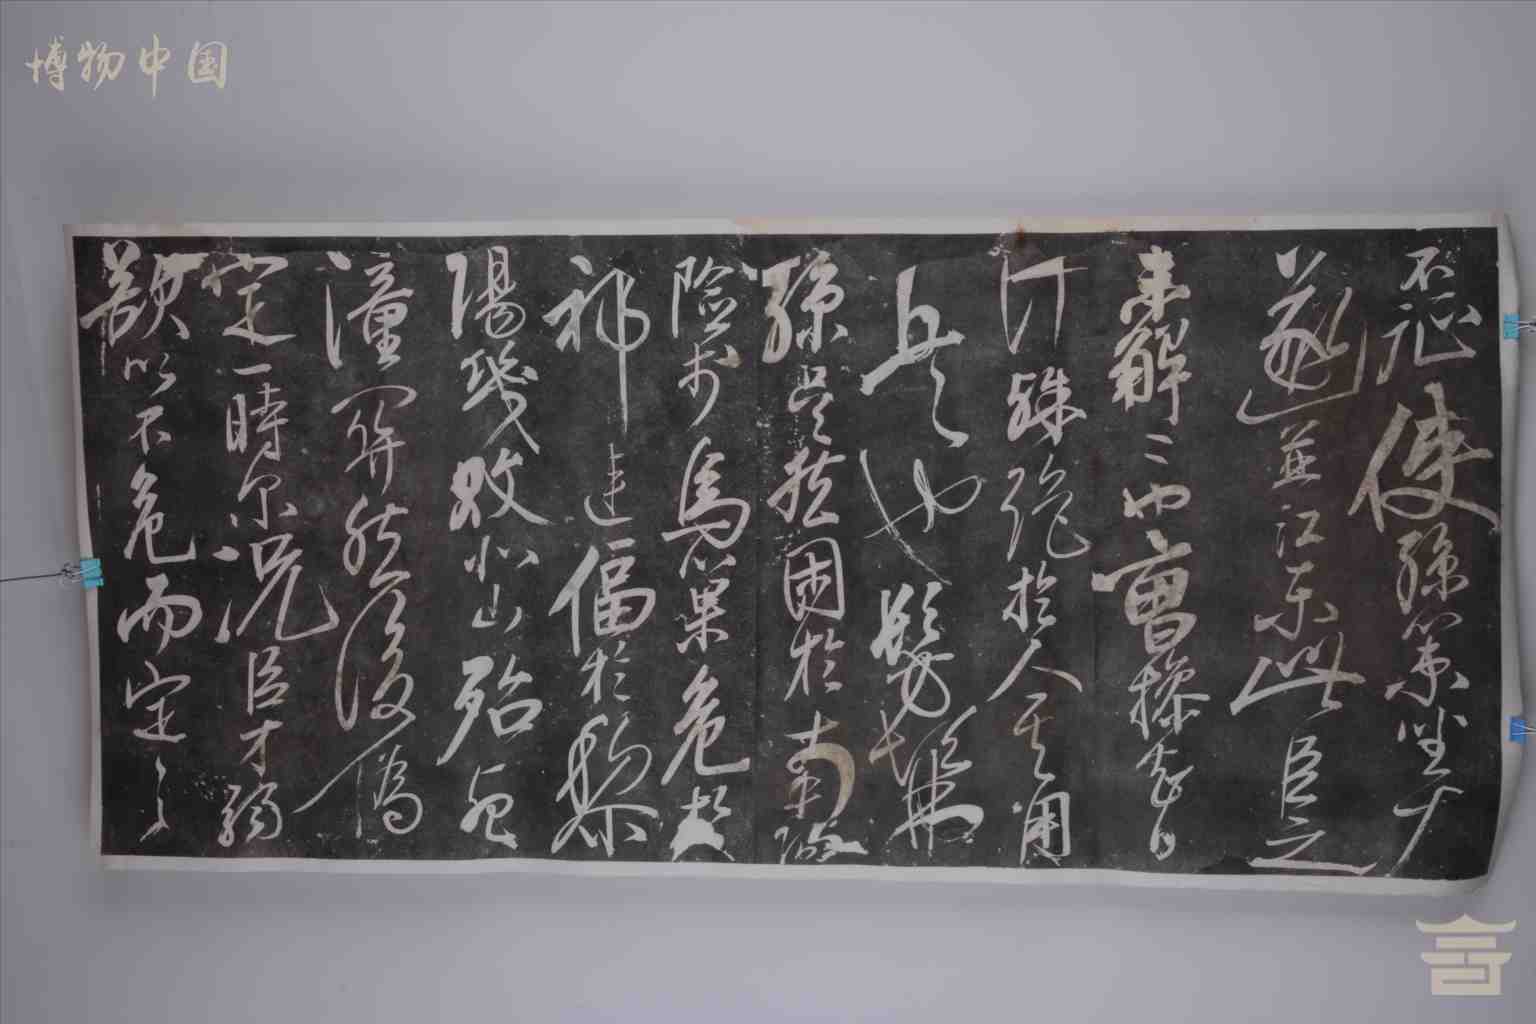 博物中国
不征使孫策坐大
遂並江東此臣之
未解二也曹操智
計殊絕於人其用
兵也髣髴
孫吳然困於南陽
險於烏巢危於
祁連偪於黎
陽幾敗北山殆死
潼關然後偽
定一時尔況臣才弱
欲以不危而定之